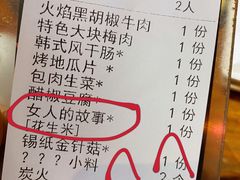 2人
火焰黑胡椒牛肉 1份
特色大块梅肉 1份
韩式风干肠* 1份
烤地瓜片* 1份
包肉生菜* 1份
醋椒豆腐* 1份
女人的故事* 1份
[花生米]
锡纸金针菇* 1份
???小料 1份
炭火 2份